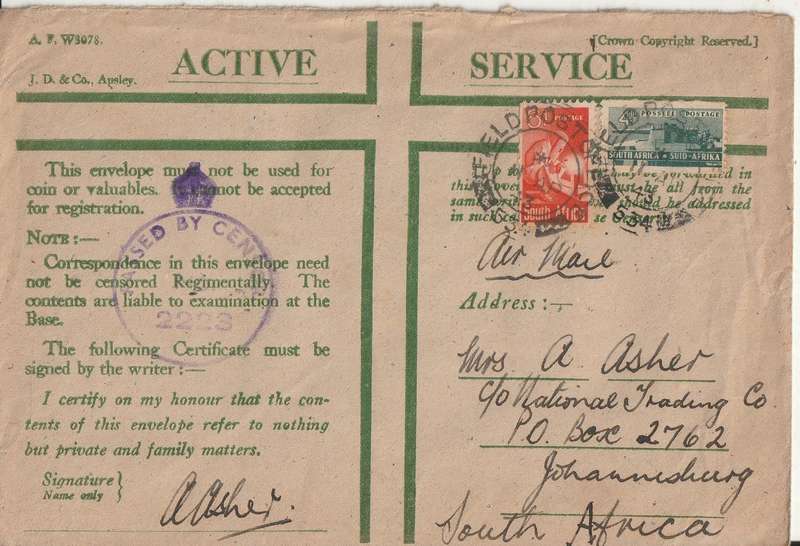 A. F. W3078.
[Crown Copyright Reserved.]
J. D. & Co., Apsley.
ACTIVE SERVICE
POSSEEL POSTAGE
SOUTH AFRICA SUID-AFRIKA
POSTAGE
SOUTH AFRICA
FIELD POST
FIELD PO
This envelope must not be used for
coin or valuables. It cannot be accepted
for registration.
NOTE :—
Correspondence in this envelope need
not be censored Regimentally. The
contents are liable to examination at the
Base.
The following Certificate must be
signed by the writer :—
I certify on my honour that the con-
tents of this envelope refer to nothing
but private and family matters.
Signature }
Name only
A Asher.
PASSED BY CENSOR
2223
be forwarded in
this cover must be all from the
same should be addressed
in such
Air Mail
Address :—
Mrs A. Asher
c/o National Trading Co
P.O. Box 2762
Johannesburg
South Africa